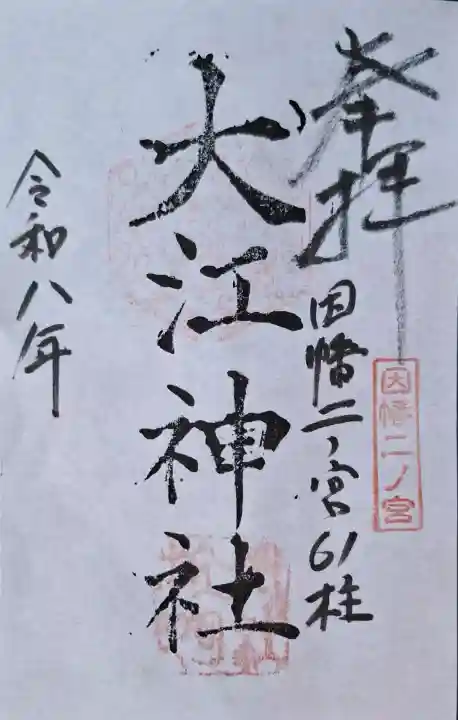 奉拝
因幡二ノ宮61柱
因幡二ノ宮
大江神社
令和八年